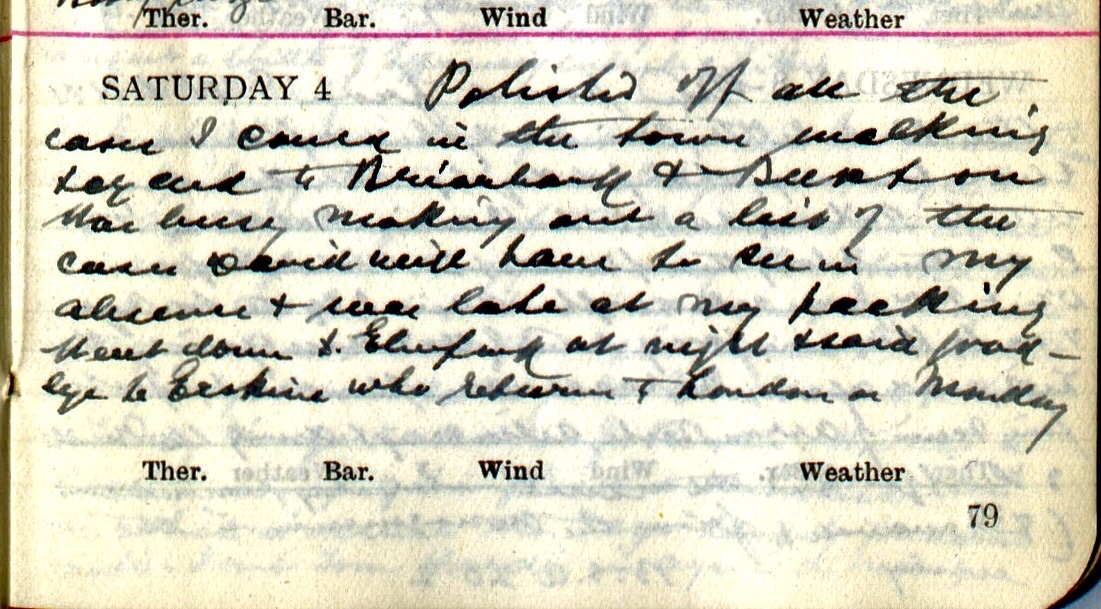 Ther. Bar. Wind Weather
SATURDAY 4 Polished off all the
cases I could in the town walking
to & Buxton
Was busy making out a list of the
cases David will have to see in my
absence & was late at my packing
Went down to at night & said good-
bye to Erskine who returns to London on Monday
Ther. Bar. Wind Weather
79